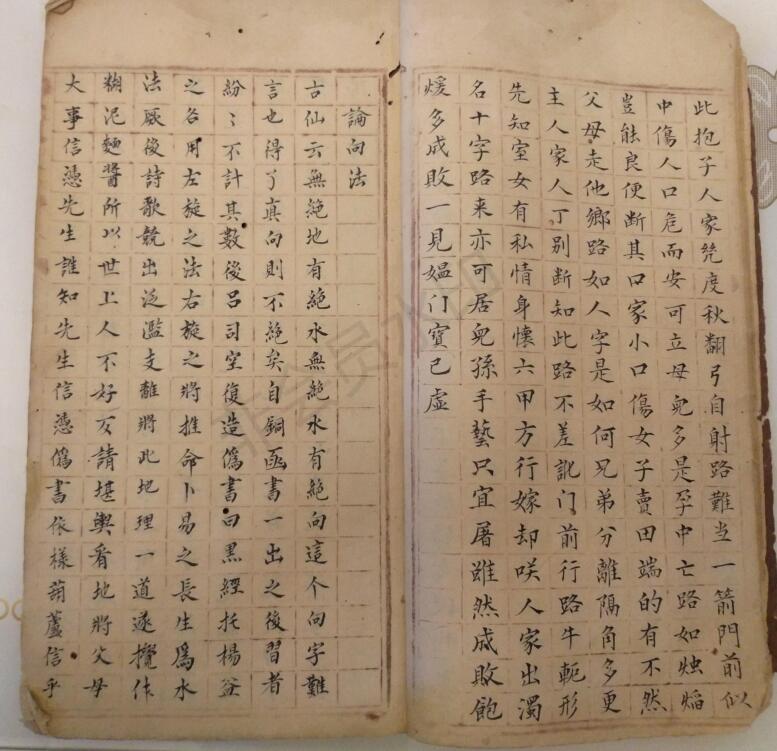 此抱子人家凳度秋翻弓自射路難当一箭門前似
中傷人口危而安可立母兒多是孕中亡路如烛焰
豈能良便断其口家小口傷女子賣田端的有不然
父母走他鄉路如人字是如何兄弟分離隔角多更
主人家人丁别断知此路不差訛门前行路牛軛形
先知室女有私情身懷六甲方行嫁却咲人家出濁
名十字路来亦可居兒孫手藝只宜屠雖然成敗飽
煖多成敗一見媪门寳已虚
論向法
古仙云無絶地有絶水無絶水有絶向這个向字難
言也得了真向則不絶矣自銅函書一出之後習者
紛〻不計其數後吕司空復造僞書曰黑經托楊益
之名用左旋之法右旋之將推命卜易之長生爲水
法厥後詩歌競出泛濫支離將此地理一道遂攪作
糊泥麵醬所以世上人不好不請堪輿看地將父母
大事信憑先生誰知先生信憑僞書依樣葫蘆信乎